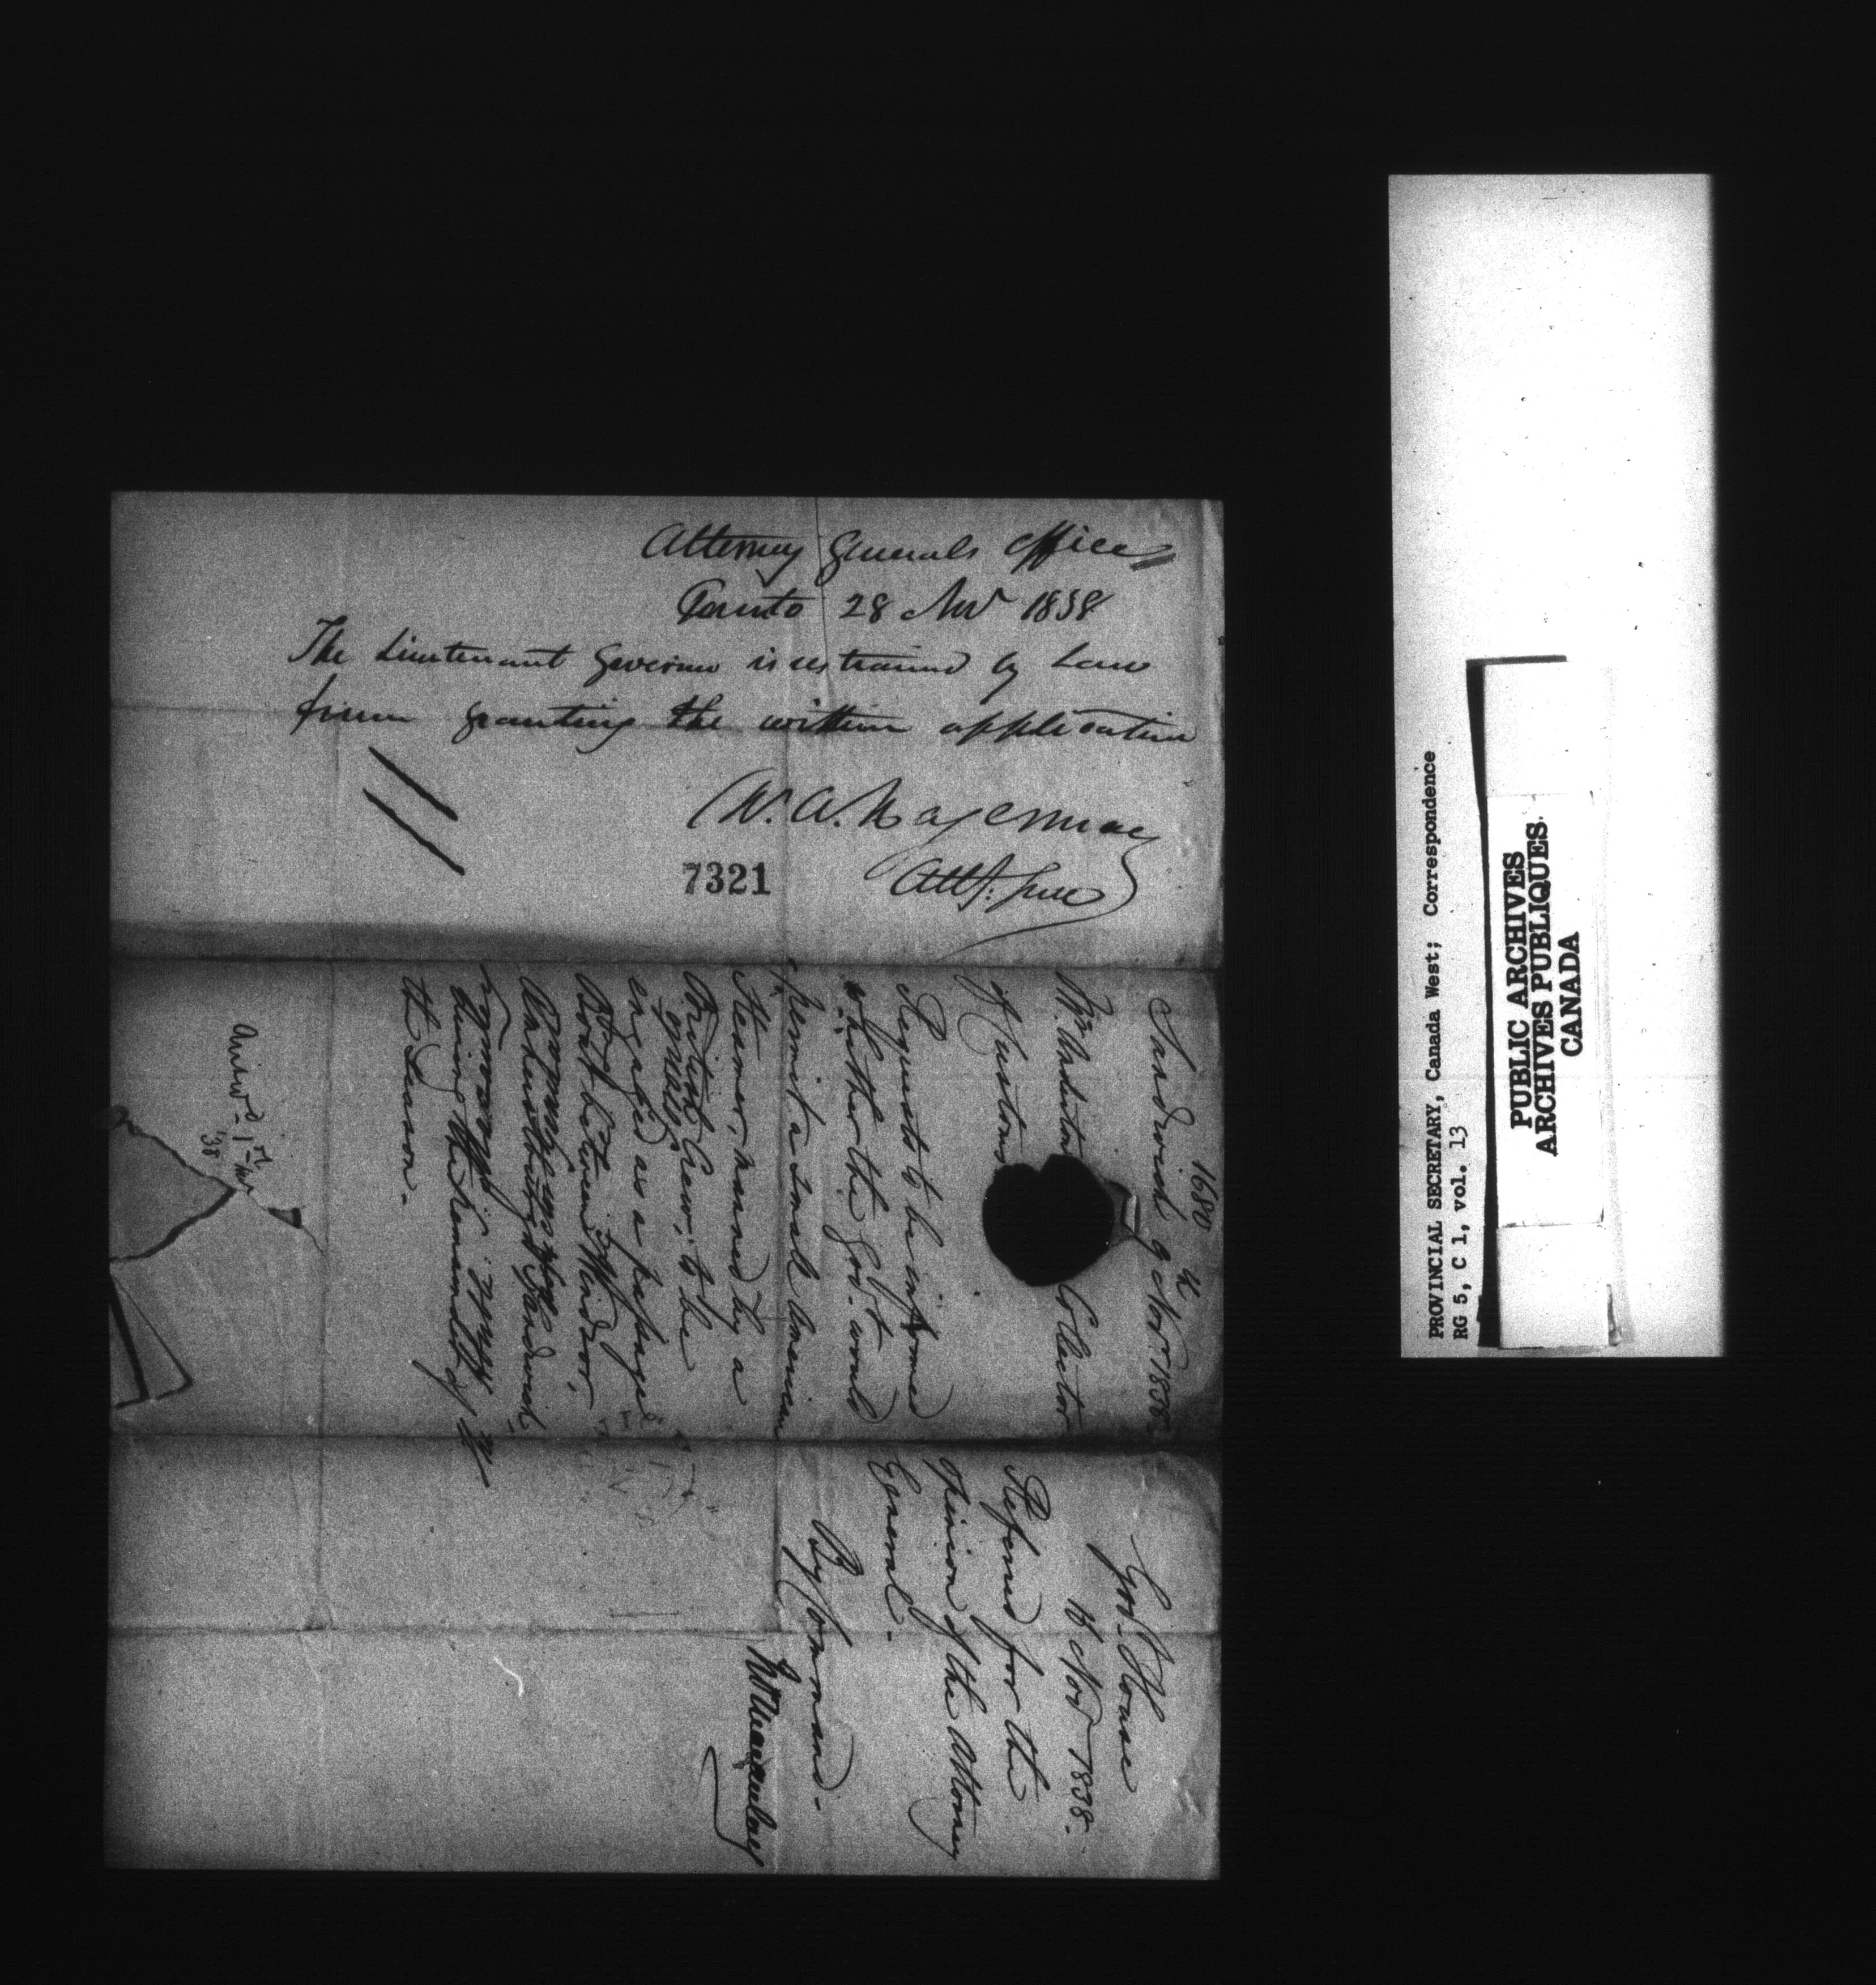 Attorney Generals Office
Toronto 28 Nov 1838
The Lieutenant Governor is restrained by Law
from granting the within application
W. A. Hagerman
Att. Gen
7321
1680
Sandwich 9th Nov. 1838
Wm. Anderton Collector
of Customs
Requests to be informed
whether the Govt. would
permit a small American
Steamer, manned by a
British Crew, to be
engaged as a passage
Boat between Windsor,
& Sandwich
during the remainder of
the Season.
Answd. 1st
'38
Govt. House
Nov 1838.
Referred for the
opinion of the Attorney
General.
By Command.
Macaulay
PROVINCIAL SECRETARY, Canada West; Correspondence
RG 5, C 1, vol. 13
PUBLIC ARCHIVES
ARCHIVES PUBLIQUES
CANADA